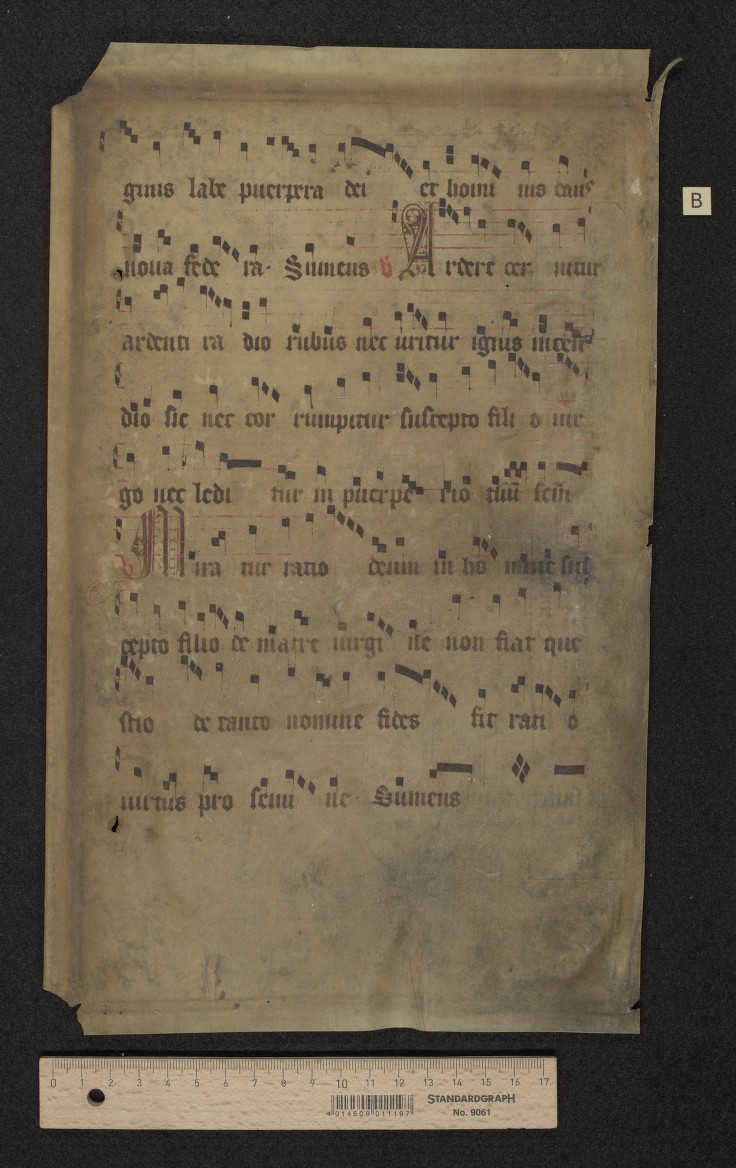 ginis labe puerpera dei et homi nis dans
noua fede ra. Sumens v Ardere cer nitur
ardenti ra dio rubus nec uritur ignis incen
dio sic nec cor rumpitur suscepto fili o uir
go nec ledi tur in puerpe rio
v Mira tur ratio deum in ho mine sus
cepto filio de matre uirgi ne non fiat que
stio de tanto nomine fides sit rati o
uirtus pro semi ne Sumens
B
0 1 2 3 4 5 6 7 8 9 10 11 12 13 14 15 16 17
4 014509 011197
STANDARDGRAPH
No. 9061